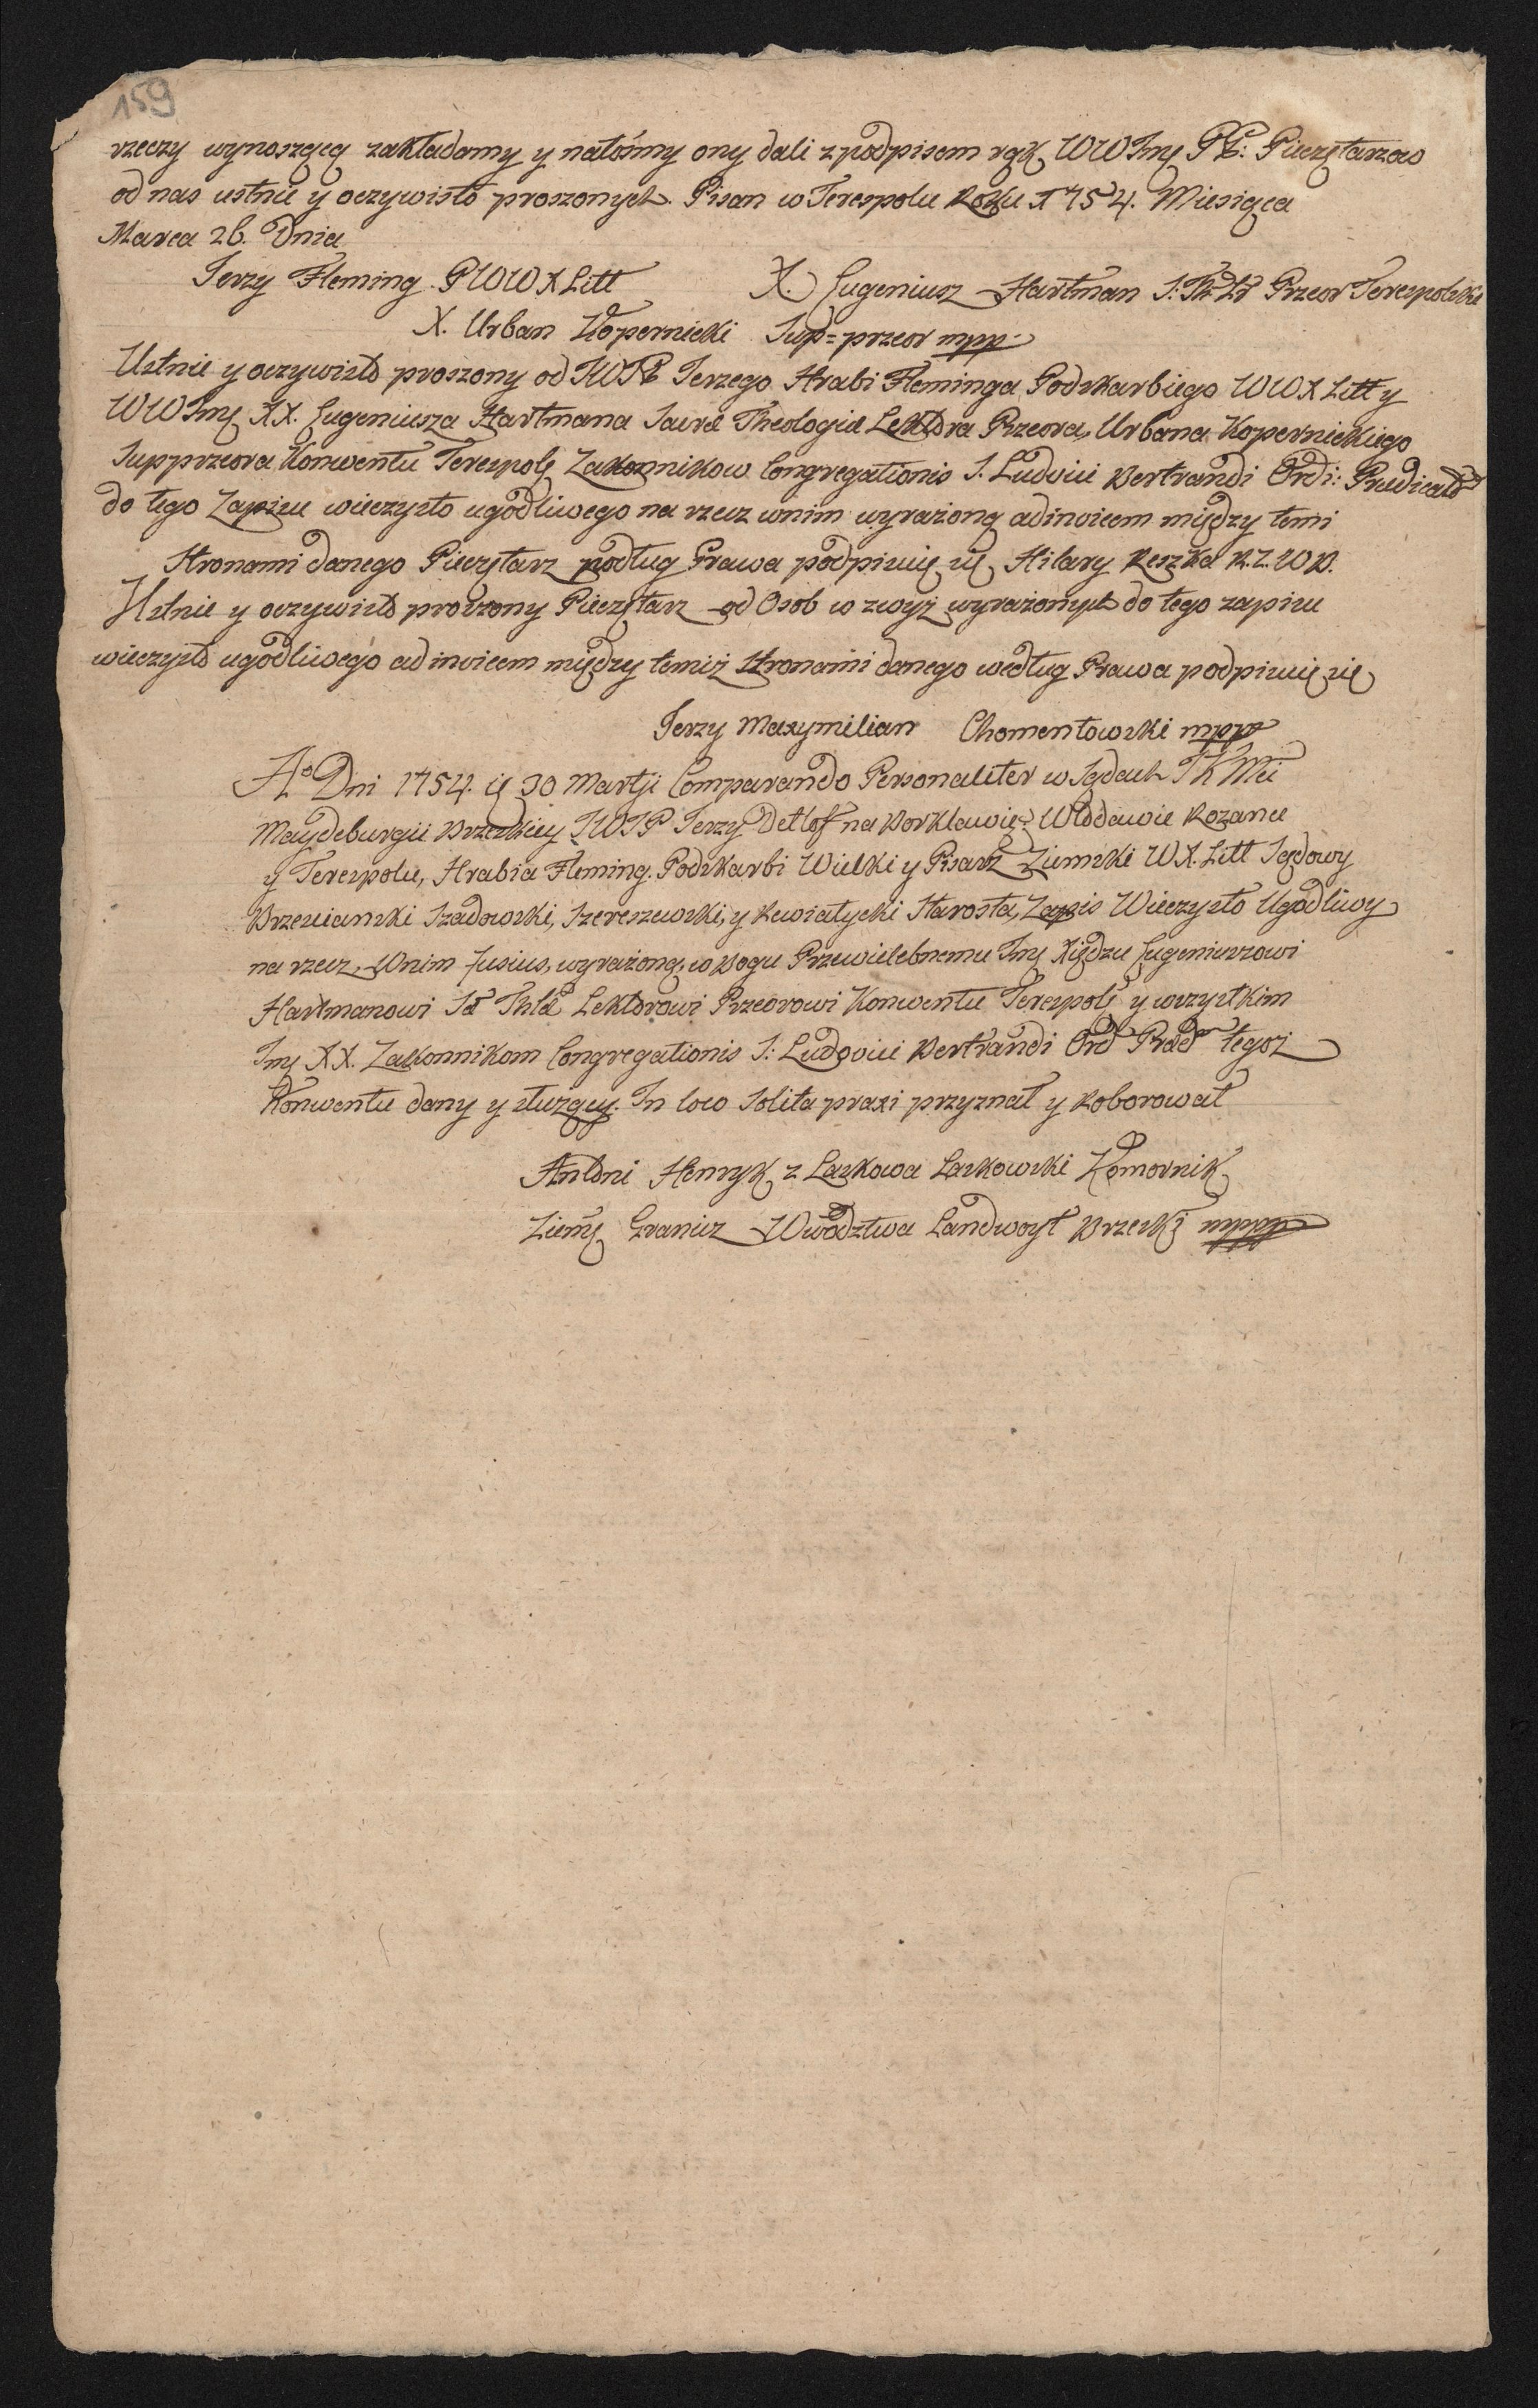 159
rzeczy wynoszącą zakładamy y natośmy ony dali z podpisem rąk WW Imę PP: Pieczętarzow
od nas ustnie y oczywisto proszonych. Pisan w Terespolu Roku 1754. Miesiąca
Marca 26. Dnia
Jerzy Fleming. PWWXLitt X. Eugeniusz Hartman S: Th: Lr Przeor Terespolski
X. Urban Kopernicki Sup=przeor mpp.
Ustnie y oczywisto proszony od JWP Jerzego Hrabi Fleminga Podskarbiego WWXLitt y
WW Imę XX. Eugeniusza Hartmana Sacræ Theologiæ Lektora Przeora, Urbana Kopernickiego
Supprzeora Konwentu Terespolę Zakonnikow Congregationis S. Ludvici Bertrandi Ordi: Prædicato
do tego Zapisu wieczysto ugodliwego na rzecz wnim wyrażoną adinvicem między temi
Stronami danego Pieczętarz podług Prawa podpisuię się Hilary Reszka R.Z.W.B.
Ustnie y oczywisto proszony Pieczętarz od Osob w zwyż wyrażonych do tego zapisu
wieczysto ugodliwego ad invicem między temiż Stronami danego według Prawa podpisuię się
Jerzy Maxymilian Chomentowski mpp
Ao Dni 1754. ię 30 Martji Comparando Personaliter w Sądach JK Mci
Maydeburgii Brzeskiey JWJP Jerzy Detlof na Borklawię Włodawie Rozance
y Terespolu, Hrabia Fleming. Podskarbi Wielki y Pisarz Ziemski WX. Litt Sądowy
Brzeszianski Szadowski, Szereszewski, y Kwiatycki Starosta, Zapis Wieczysto Ugodliwy
na rzecz Wnim fusius, wyrażoną, w Bogu Przewielebnemu Imę Xiędzu Eugeniuszowi
Hartmanowi Sæ Thlæ Lektorowi Przeorowi Konwentu Terespolę y wszystkim
Imę XX. Zakonnikom Congregationis S: Ludovici Bertrandi Ord Præd tegoż
Konwentu dany y służący. In loco Solita praxi przyznał y Roborował
Antoni Henryk z Laskowa Laskowski Komornik
Ziemę Granicz Wwodztwa Landwoyt Brzeskj mppp